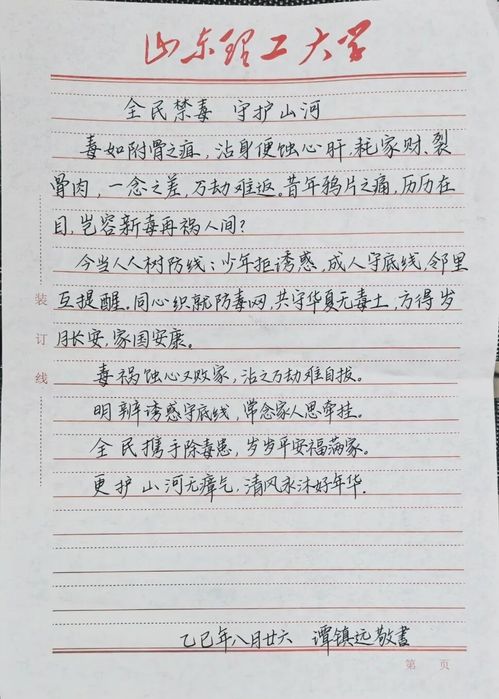 山东理工大学
全民禁毒 守护山河
毒如附骨之疽，沾身便蚀心肝，耗家财、裂
骨肉，一念之差，万劫难返。昔年鸦片之痛，历历在
目，岂容新毒再祸人间？
今当人人树防线：少年拒诱惑，成人守底线，邻里
互提醒。同心织就防毒网，共守华夏无毒土，方得岁
月长安，家国安康。
毒祸蚀心又败家，沾之万劫难自拔。
明辨诱惑守底线，常念家人思牵挂。
全民携手除毒患，岁岁平安福满家。
更护山河无瘴气，清风永沐好年华。
乙巳年八月廿六 谭镇远敬书
装订线
第 页